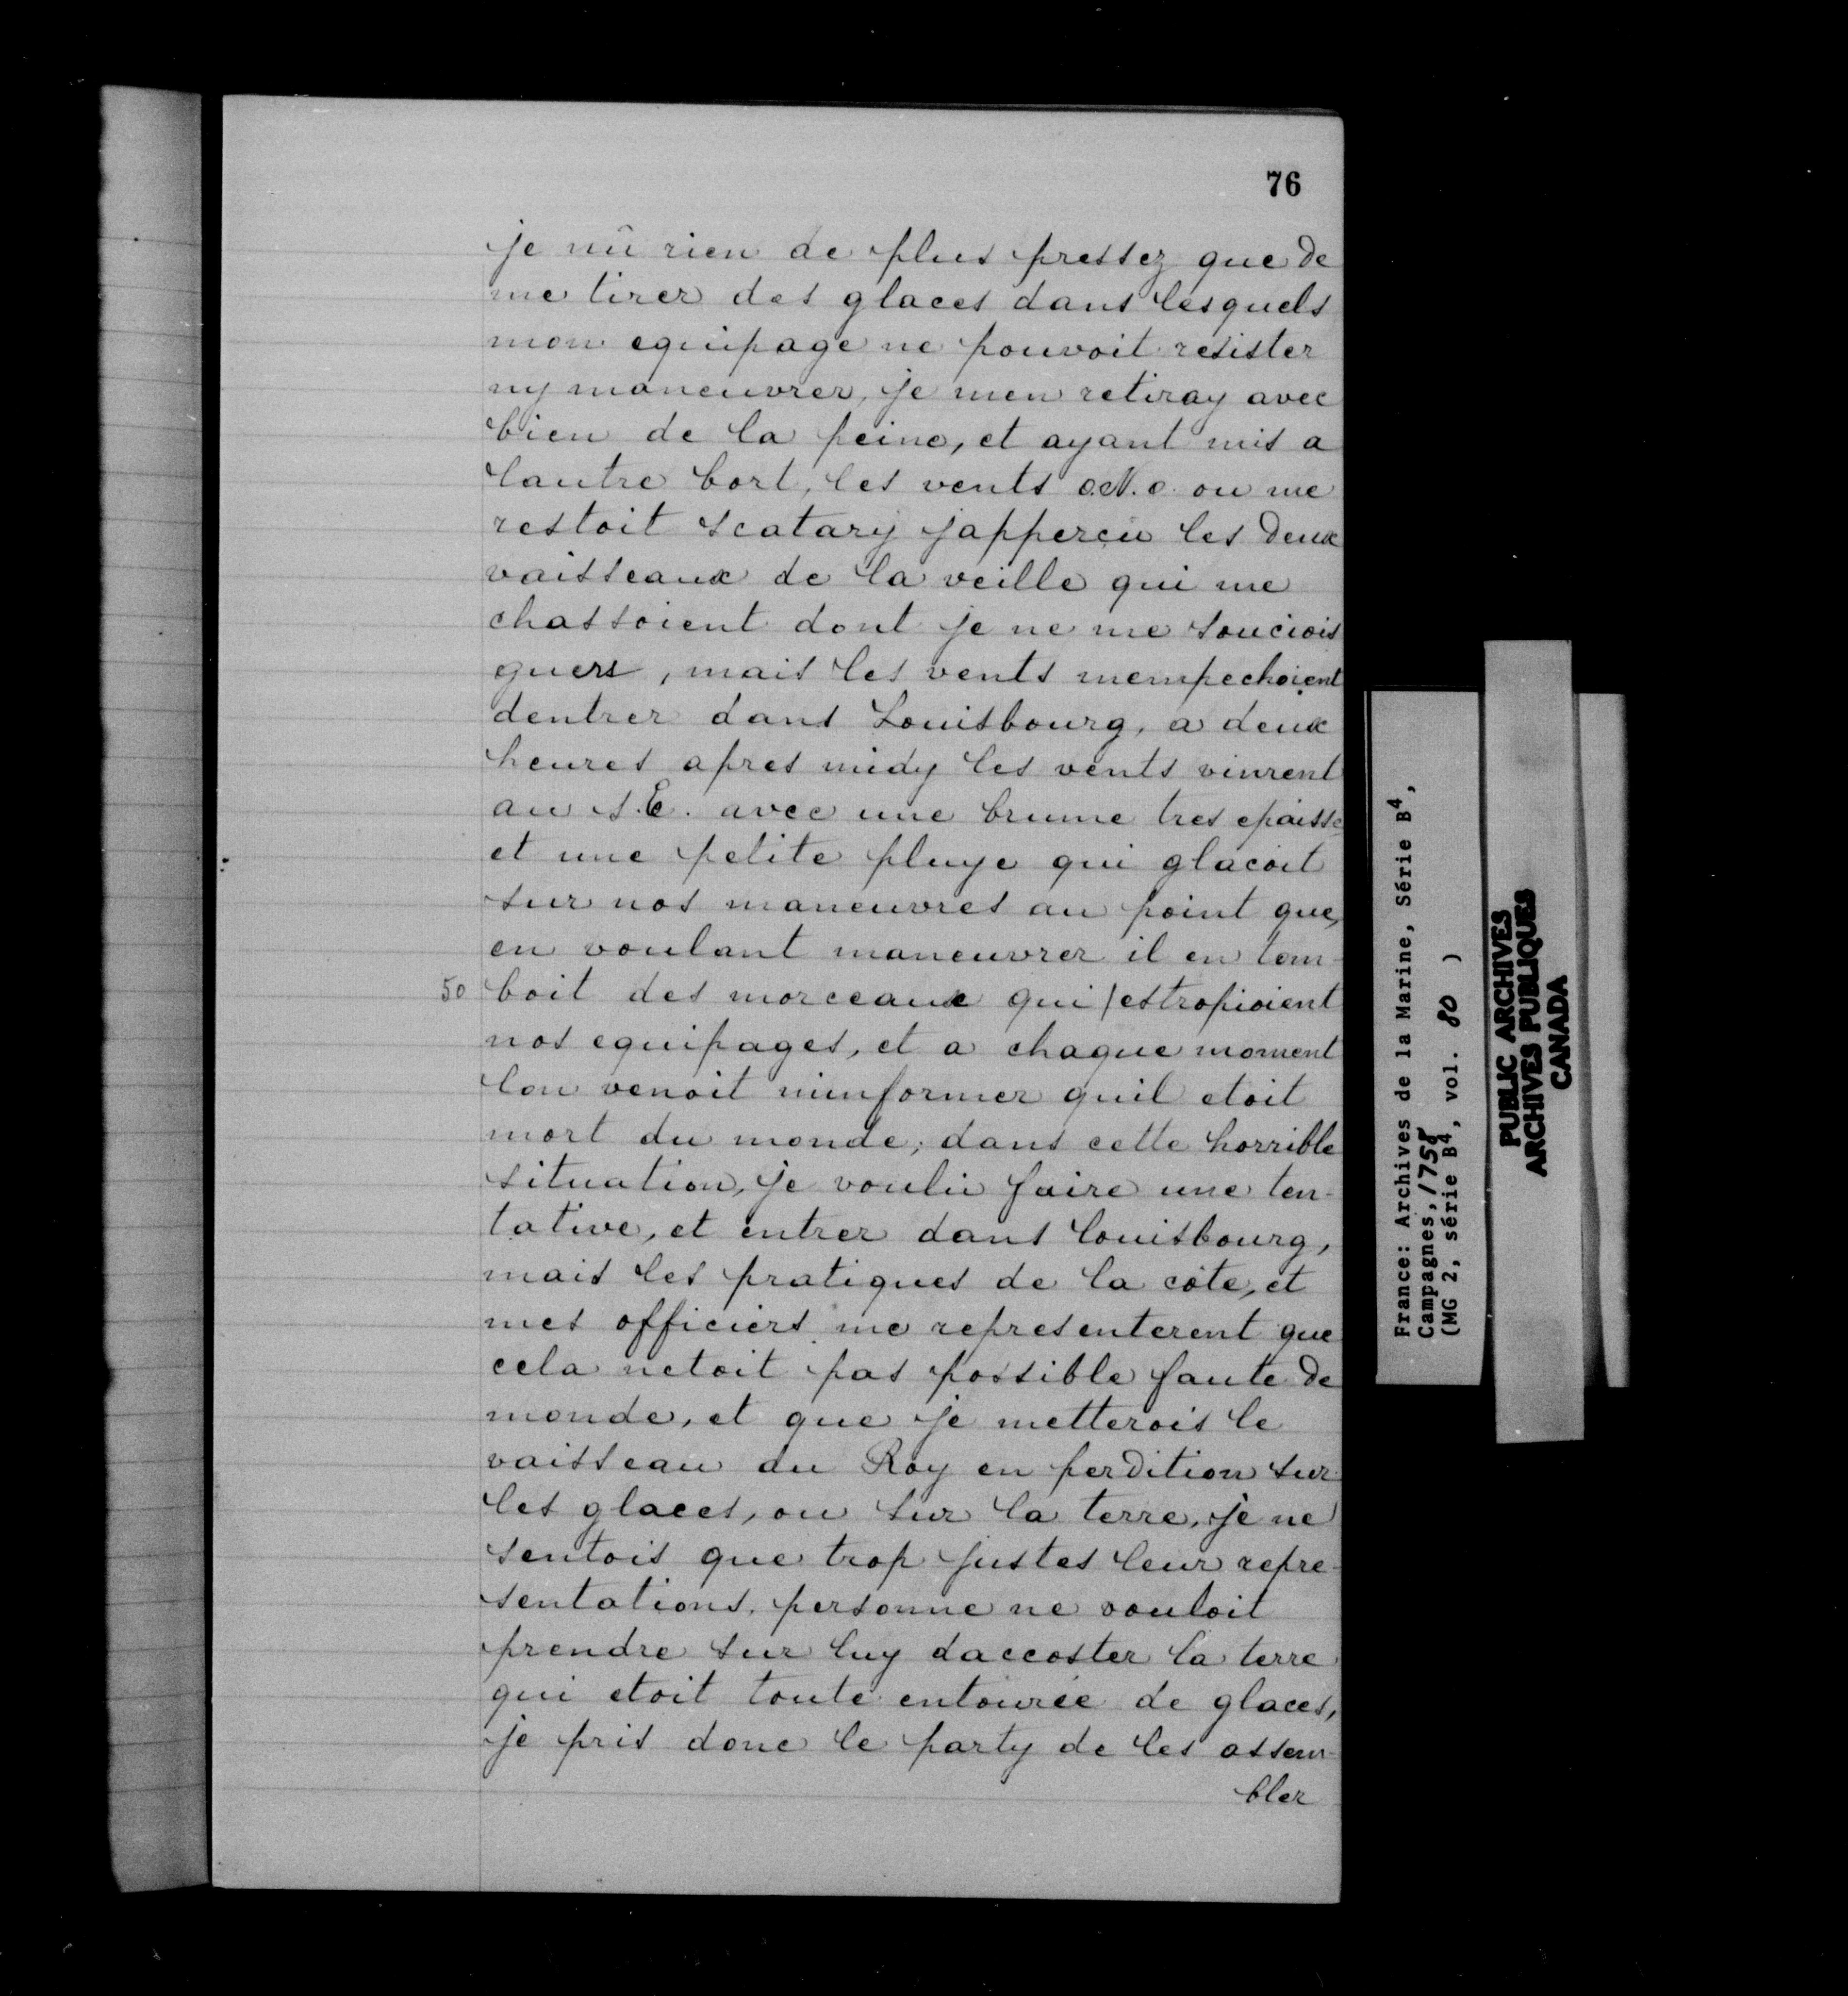 76
je nû rien de plus pressez que de
me tirer des glaces dans lesquels
mon equipage ne pouvoit resister
ny maneuvrer, je men retiray avec
bien de la peine, et ayant mis a
lautre bort, les vents o.N.o. ou me
restoit Scatary japperçu les deux
vaisseaux de la veille qui me
chassoient dont je ne me souciois
guers, mais les vents mempechoient
dentrer dans Louisbourg, a deux
heures apres midy les vents vinrent
au S.E. avec une brume tres epaisse
et une petite pluye qui glacoit
sur nos maneuvres au point que,
en voulant maneuvrer il en tom-
50 boit des morceaux qui / estropioient
nos equipages, et a chaque moment
lon venoit minformer quil etoit
mort du monde; dans cette horrible
situation, je voulu faire une ten-
tative, et entrer dans Louisbourg,
mais les pratiques de la côte, et
mes officiers me representerent que
cela netoit pas possible faute de
monde, et que je metterois le
vaisseau du Roy en perdition sur
les glaces, ou sur la terre, je ne
sentois que trop justes leur repre-
sentations, personne ne vouloit
prendre sur luy daccoster la terre
qui etoit toute entourée de glaces,
je pris donc le party de les assem-
bler
France: Archives de la Marine, Série B4,
Campagnes, 1758
(MG 2, série B4, vol. 80 )
PUBLIC ARCHIVES
ARCHIVES PUBLIQUES
CANADA